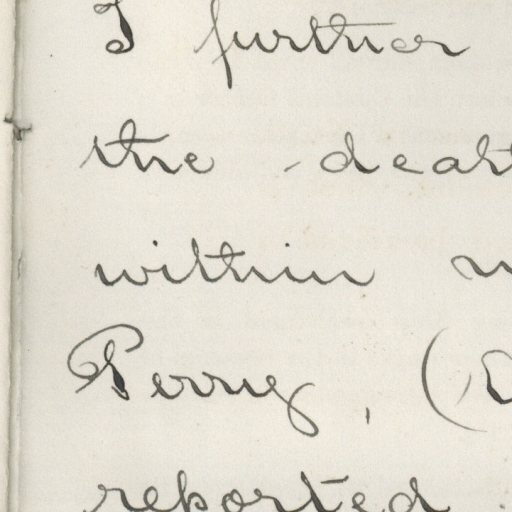 I further
the deat
within
Perry, (
reported